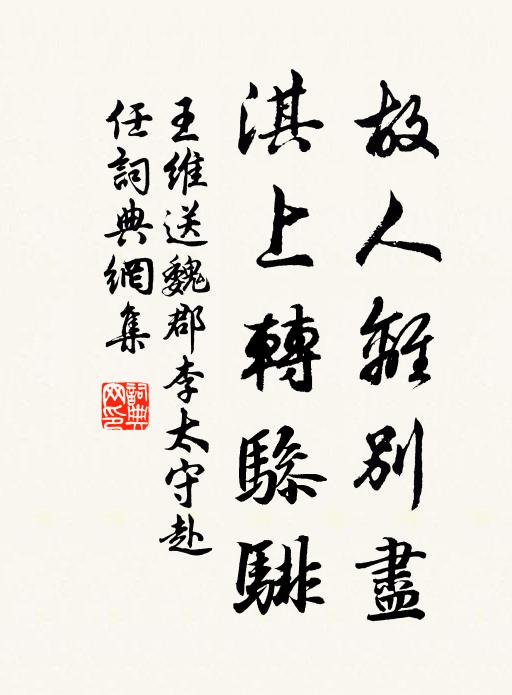 故人離別盡
淇上轉驂騑
王維送魏郡李太守赴
任詞典網集
詞典
网印